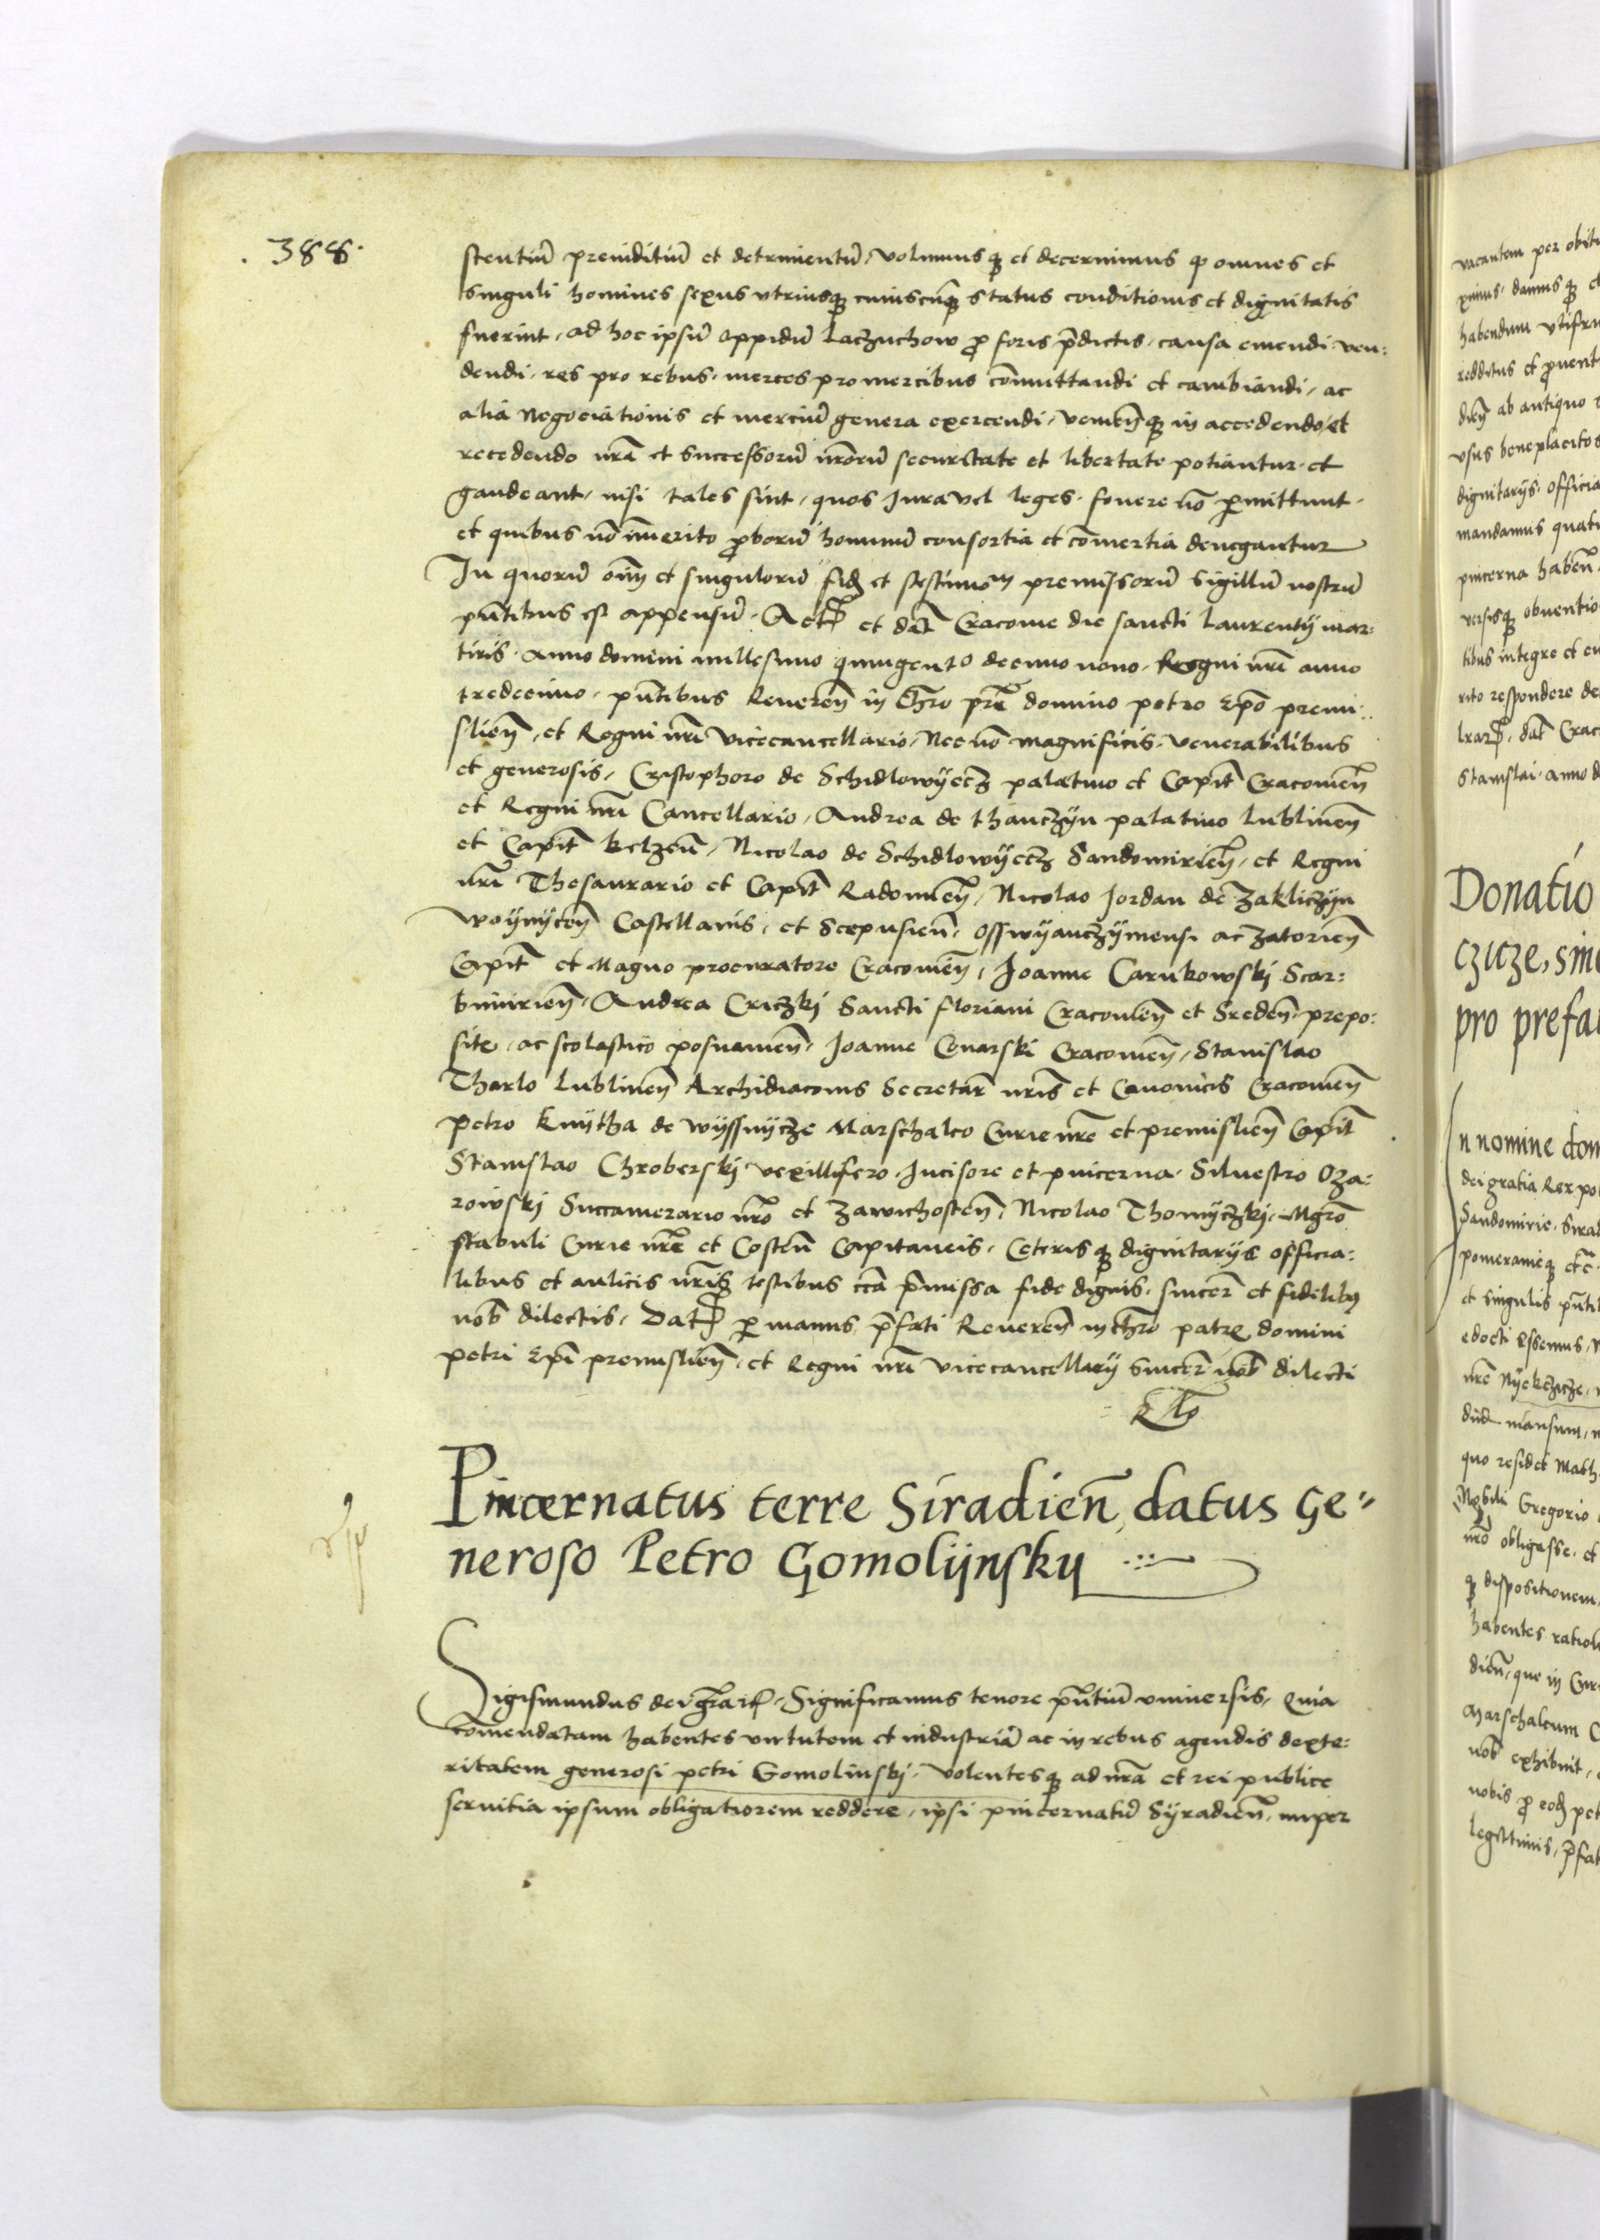 .388.
stentiũ preiuditiũ et detrimentũ, volumusqꝫ et decernimus ꝙ omnes et
singuli homines sexus vtriusqꝫ cuiuscũqꝫ status conditionis et dignitatis
fuerint, ad hoc ipsũ oppidũ Laczuchow ꝓ foris p̃dictis, causa emendi, ven:
dendi, res pro rebus, merces pro mercibus cõmuttandi et cambiandi, ac
alia negociationis et merciũ genera exercendi, veniẽñqꝫ in accedendo et
recedendo nrã et successorũ nrõrũ securitate et libertate potiantur, et
gaudeant, nisi tales sint, quos Jura vel leges, fovere nõ ꝑmittunt,
et quibus nõ im̃erito ꝓborũ hominũ consortia et cõmertia denegantur
In quorũ om̃ et singulorũ fidẽ et testimoᵐ premissorũ sigillũ nostrũ
pñtibus est appensũ. Actꝭ et dat̃ Cracovie die sancti Laurentij mar:
tiris, Anno domini millesimo quingento decimo nono, Regni nrĩ anno
tredecimo, pñtibus Reveren̄ in Chrõ prẽ domino petro Epõ premi:
slien̄, et Regni nrĩ Vicecancellario, Necnõ magnificis, venerabilibus
et generosis, Cristophoro de Schidlowyecz palatino et Capit̃ Cracovien̄
et Regni nrĩ Cancellario, Andrea de thanczyn palatino lublinen̄
et Capit̃ belzen̄, Nicolao de Schidlowyecz Sandomirien̄, et Regni
nrĩ Thesaurario et Capit̃ Radomien̄, Nicolao Jordan de Zakliczyn
Woynycen̄ Castellanis, et Scepusien̄, Osswyanczymensi ac Zatorien̄
Capit̃ et Magno procuratore Cracovien̄, Joanne Carnkowskj Scar:
bimirien̄, Andrea Criczkj Sancti floriani Cracovien̄ et Sreden̄, prepo:
site, ac scolastico posnanien̄, Joanne Conarski Cracovien̄, Stanislao
Tharlo lublinen̄ Archidiaconis Secretar̃ nrĩs et Canonicis Cracovien̄
Petro kmytha de wyssnycze Marschalco Curie nrẽ et premislien̄ Capit̃
Stanislao Chroberskj vexillifero, Incisore et pincerna, Silvestro Oza:
rowskj Succamerario nrõ et Zawichosten̄, Nicolao Thomyczkj, Mgrõ
stabuli Curie nrẽ et Costen̄ Capitaneis, Ceterisqꝫ dignitarijs officia:
libus et aulicis nrĩs testibus cc̃a p̃missa fide dignis, sincer̃ et fidelibꝯ
nob̃ dilectis, Datꝭ ꝑ manus p̃fati Reveren̄ in chrõ patris domini
petri Epĩ premislien̄, et Regni nrĩ vicecancellarij sincer̃ nob̃ dilecti
Pincernatus terre Siradien̄, datus Ge⸗
neroso Petro Gomolijnskij
Sigismundus dei grã ꝛc̃, Significamus tenore pñtiũ vniversis, Quia
com̃endatam habentes virtutem et industriã ac in rebus agendis dexte:
ritatem generosi petri Gomolinskj, volentesqꝫ ad nrã et rei publice
servitia ipsum obligatiorem reddere, ipsi pincernatũ Syradien̄, nuper
vacantem per obitu
habendum
redditus et ꝓvent
ab antiquo
vsus beneplacitos
dignitarijs, officia
mandamus quat
pincerna haben̄
obventio
tibus integre et
rito respondere de
dat̃ Crac
Stanislai, anno d
Donatio
czicze, sine
pro prefa
n nomine dom
dei gratia Rex po
Sandomirie, Sirad
pomeranieqꝫ
et singulis pñti
edocti Essemus,
nrẽ Nyekczicze,
mansum,
quo residet Math
Nobili Gregorio
nrõ obligasse, et
qꝫ dispositionem,
habentes ration
dien̄, que in Cur
Marschalcum
nob̃ exhibuit,
nobis ꝓ eodẽ pet
legittimis, p̃fat